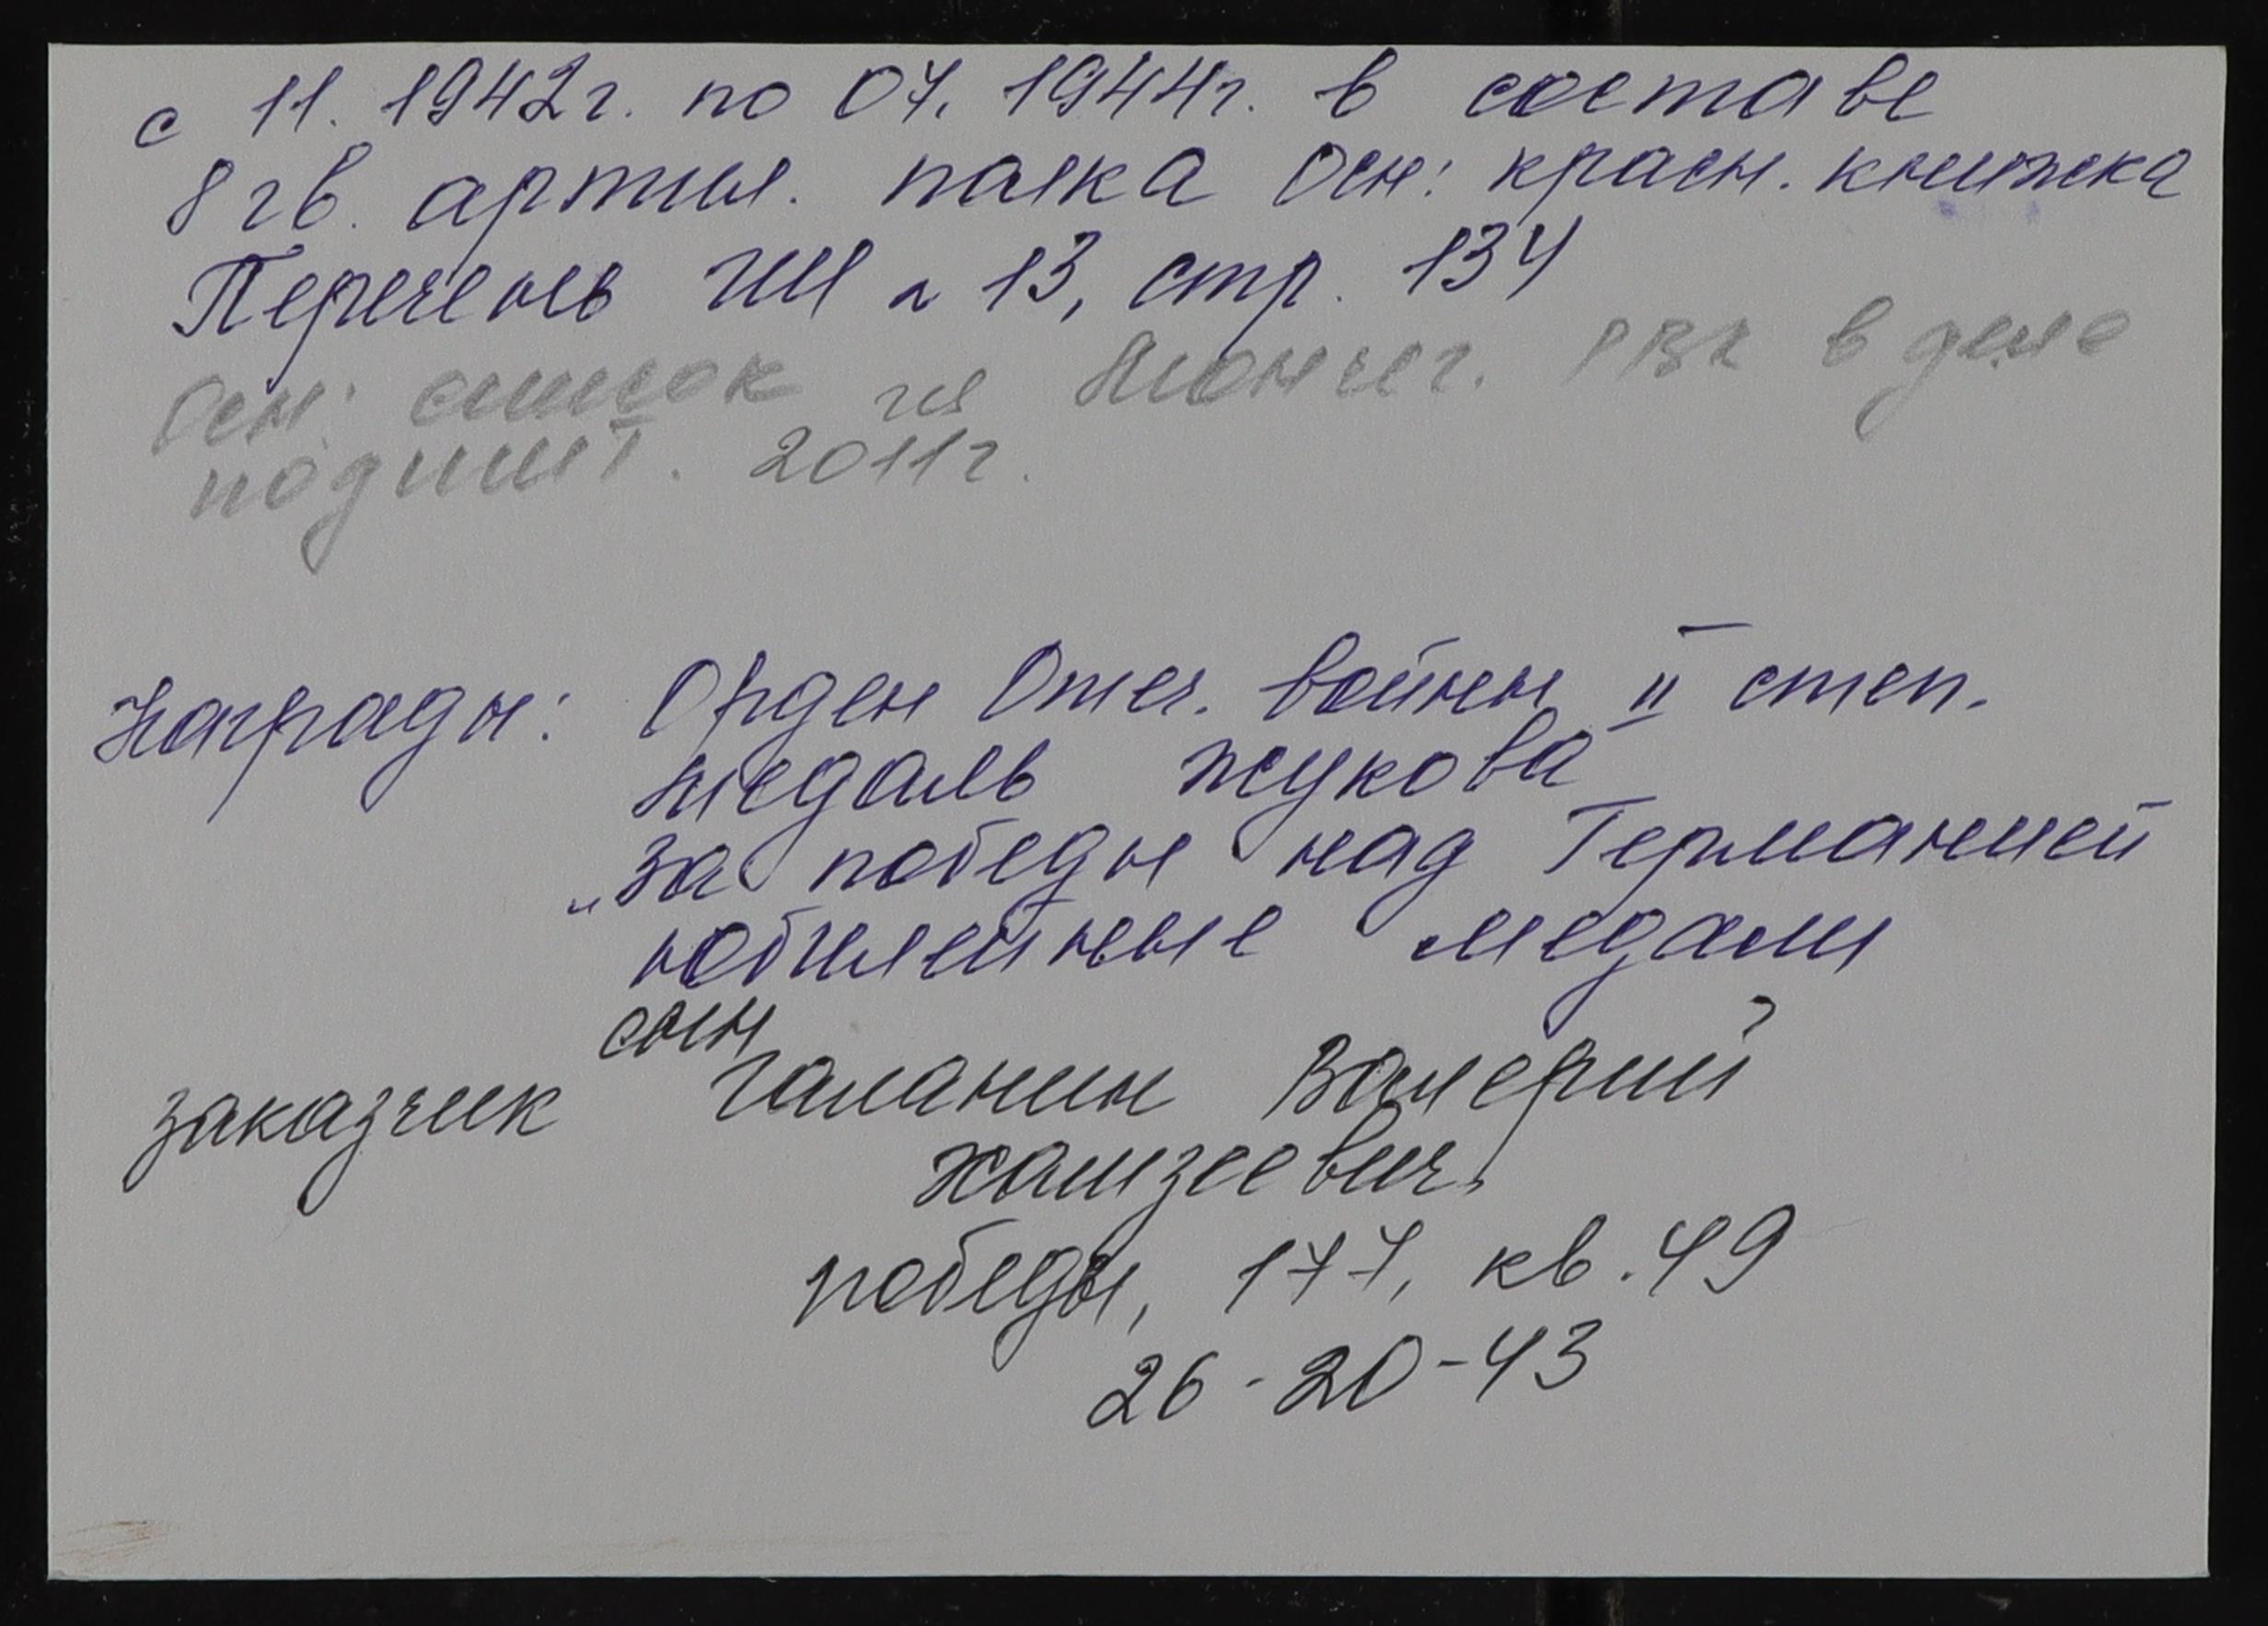 с 11. 1942г. по 07. 1944г. в составе
8 гв. артил. полка Осн: красн. книжка
Перечень ГШ № 13, стр. 134
Осн: список из РВК в деле
подшит. 2011г.
Награды: Орден Отеч. войны II степ.
медаль Жукова
„За победы над Германией
юбилейные медали
сын
заказчик Галанин Валерий
Хамзеевич
победы, 177, кв. 49
26-20-43